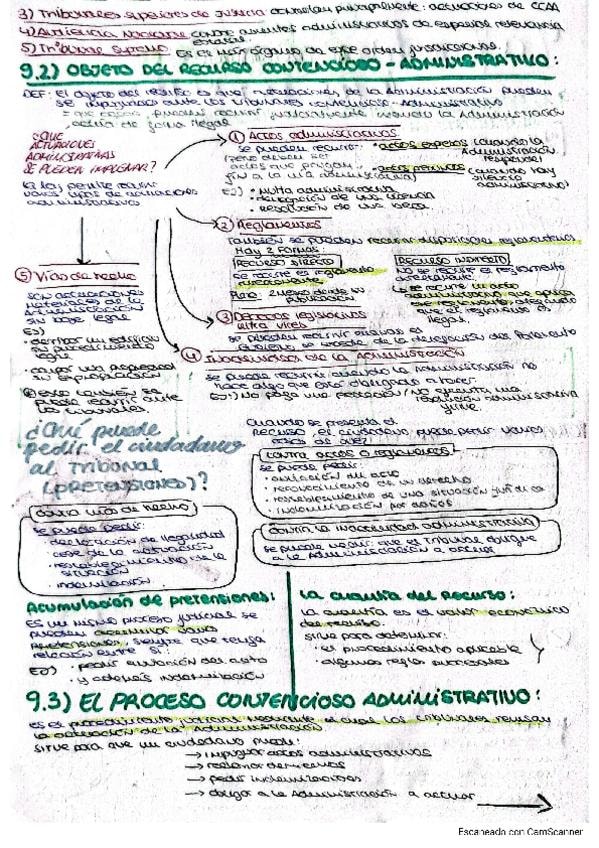 3) Tribunales superiores de Justicia controlan principalmente: actuaciones de CCAA
4) Audiencia Nacional contra asuntos administrativos de especial relevancia
estatal.
5) Tribunal Supremo Es el más órgano de este orden jurisdiccional.
9.2) OBJETO DEL RECURSO CONTENCIOSO-ADMINISTRATIVO:
DEF: El objeto del recurso es que actuaciones de la Administración pueden
se impugnar ante los tribunales contencioso-administrativo
= que cosas pueden recurrir judicialmente cuando la Administración
actúa de forma ilegal
¿QUE
ACTUACIONES
ADMINISTRATIVAS
SE PUEDEN IMPUGNAR?
La ley permite recurrir
varios tipos de actuaciones
administrativas
1) Actos administrativos
se pueden recurrir:
(pero deben ser
actos que pongan
fin a la vía administrativa)
• actos expresos (cuando la
Administración
responde)
• actos presuntos (cuando hay
silencio
administrativo)
EJ) • multa administrativa
• denegación de una licencia
• resolución de una beca.
2) Reglamentos
También se pueden recurrir disposiciones reglamentarias
Hay 2 formas:
RECURSO DIRECTO
Se recurre el reglamento
directamente
Plazo: 2 meses desde su
publicación
RECURSO INDIRECTO
No se recurre el reglamento
directamente.
↳ se recurre un acto
administrativo que aplica
ese reglamento alegando
que el reglamento es
ilegal.
3) Decretos legislativos
ultra vires
se pueden recurrir cuando el
Gobierno se excede de la delegación del Parlamento
4) Inactividad de la Administración
se puede recurrir cuando la Administración no
hace algo que está obligada a hacer.
EJ: No paga una prestación/No ejecuta una
resolución administrativa
firme.
5) Vías de hecho
son actuaciones
materiales de la
Administración
sin base legal
EJ)
• derribar un edificio
sin procedimiento
legal
• ocupar una propiedad
sin expropiación
esto también se
puede recurrir ante
los tribunales.
¿Qué puede
pedir el ciudadano
al Tribunal
(PRETENSIONES)?
Cuando se presenta el
RECURSO, el ciudadano puede pedir varias
cosas al juez:
contra actos o reglamentos
se puede pedir:
• anulación del acto
• reconocimiento de un derecho
• restablecimiento de una situación jurídica
• indemnización por daños
contra vías de hecho
se puede pedir:
• declaración de ilegalidad
• cese de la actuación
• restablecimiento de la
situación
• indemnización
contra la inactividad administrativa
se puede pedir: que el Tribunal obligue
a la Administración a actuar
Acumulación de pretensiones:
ES un mismo proceso judicial se
pueden acumular varias
pretensiones, siempre que tenga
relación entre sí.
EJ) • pedir anulación del acto
• y además indemnización
La cuantía del Recurso:
La cuantía es el valor económico
del recurso.
sirve para determinar:
• el procedimiento aplicable
• algunas reglas procesales
9.3) EL PROCESO CONTENCIOSO ADMINISTRATIVO:
es el procedimiento judicial mediante el cual los tribunales revisan
la actuación de la Administración
sirve para que un ciudadano puede:
→ impugnar actos administrativos
→ reclamar derechos
→ pedir indemnizaciones
→ obligar a la Administración a actuar
Escaneado con CamScanner